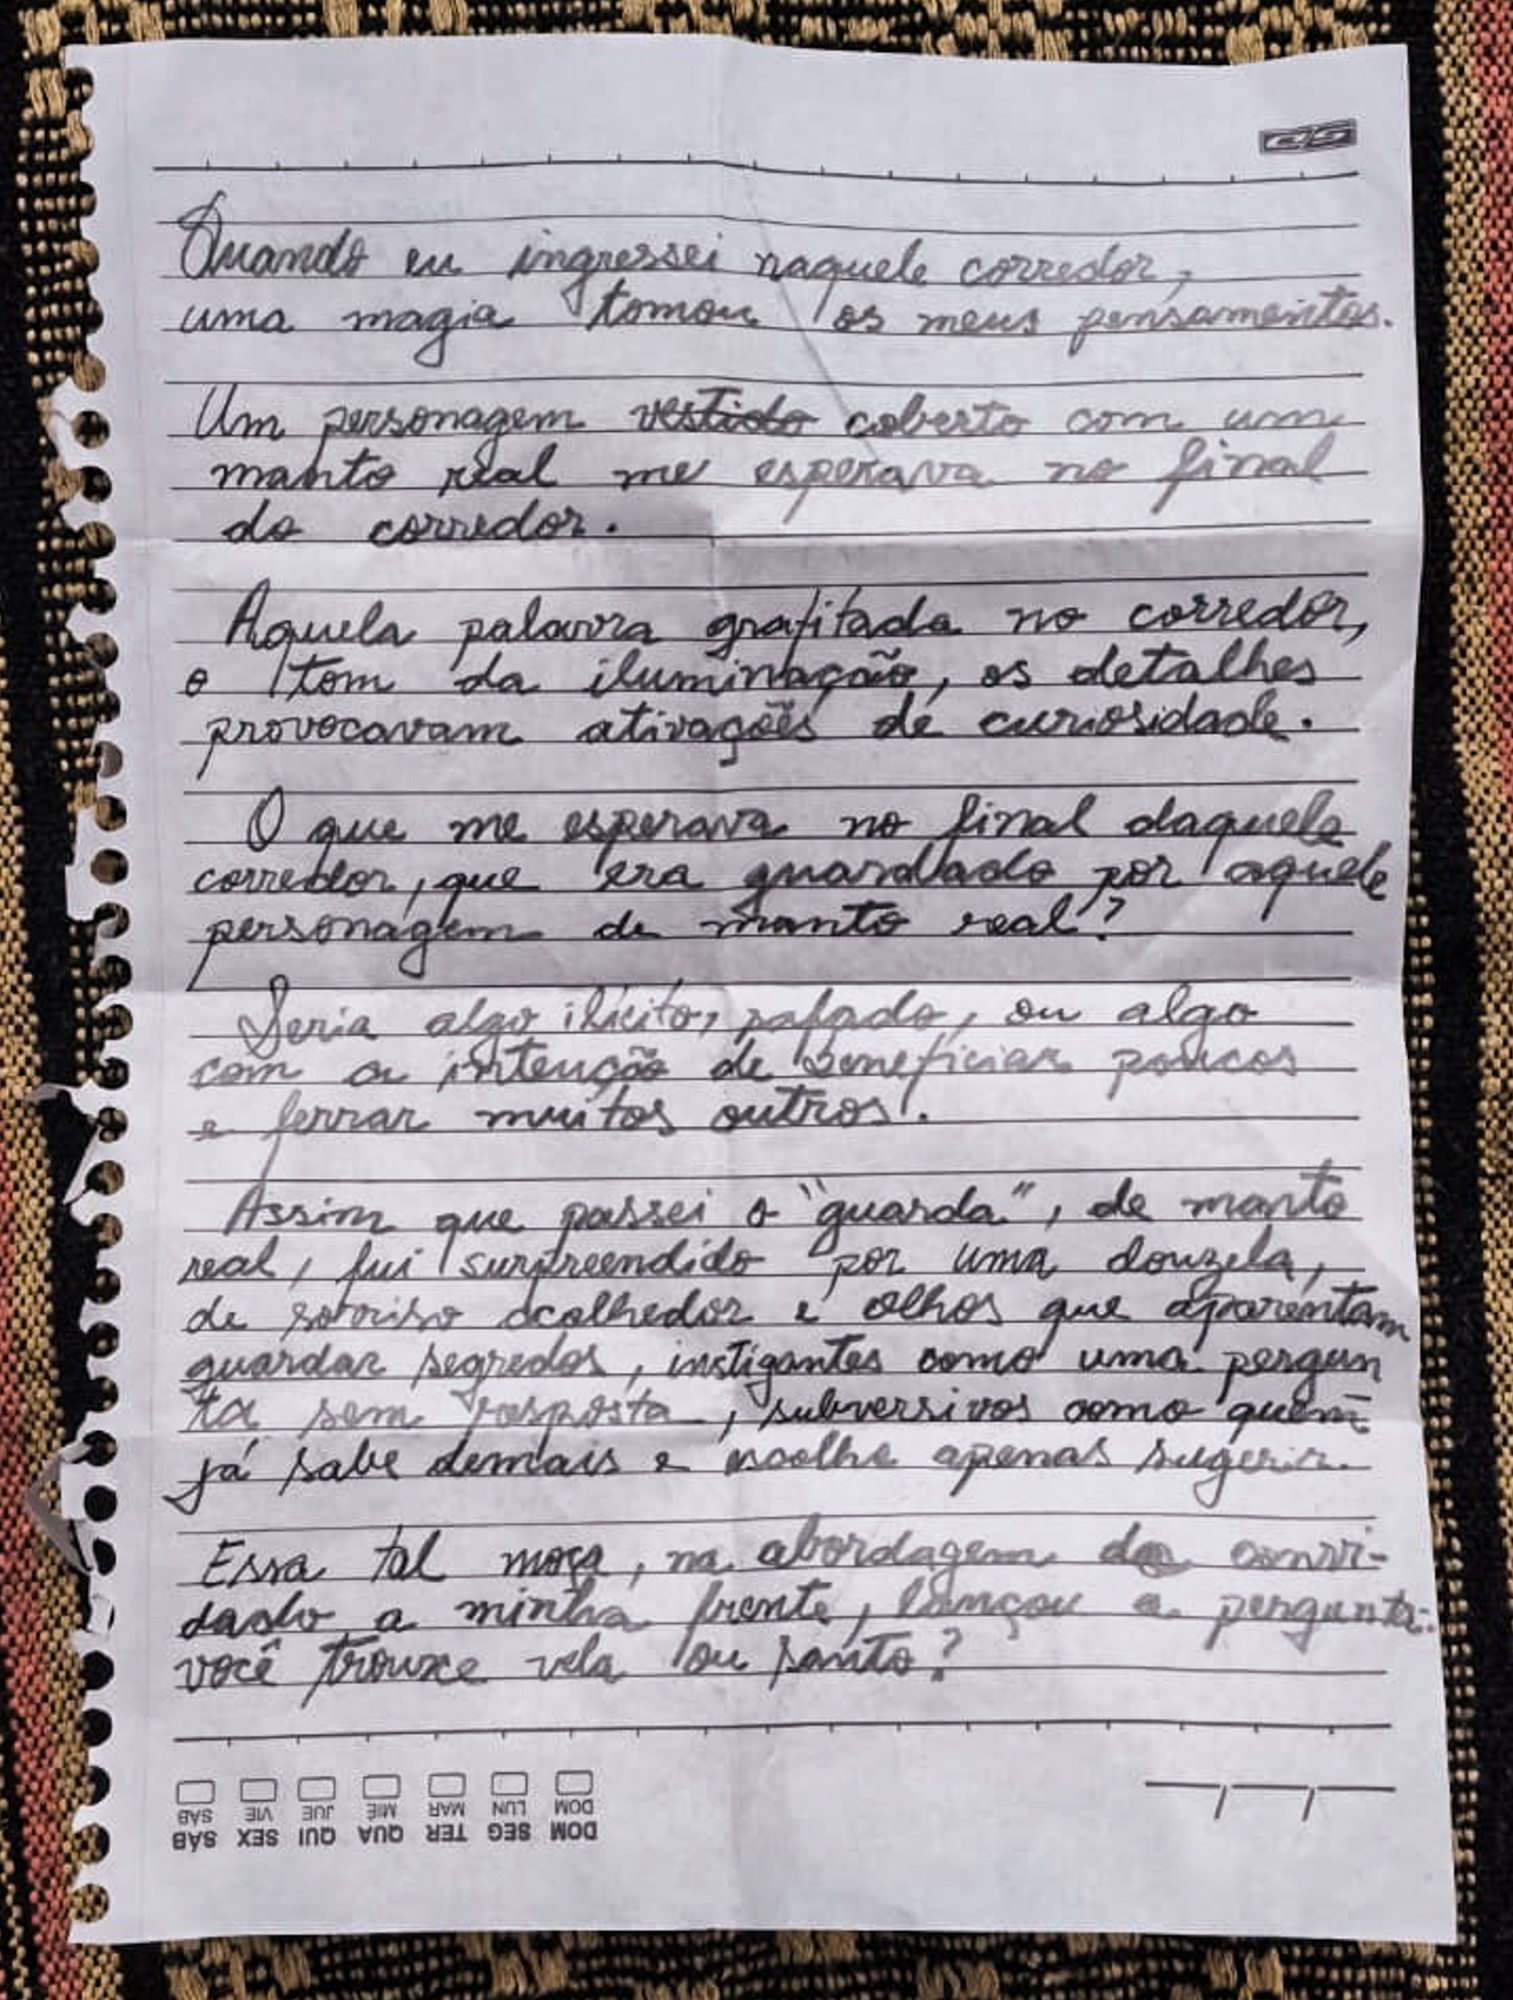 Quando eu ingressei naquele corredor,
uma magia tomou os meus pensamentos.
Um personagem vestido coberto com um
manto real me esperava no final
do corredor.
Aquela palavra grafitada no corredor,
o tom da iluminação, os detalhes
provocavam ativações de curiosidade.
O que me esperava no final daquele
corredor, que era guardado por aquele
personagem de manto real?
Seria algo ilícito, safado, ou algo
com a intenção de beneficiar poucos
e ferrar muitos outros.
Assim que passei o "guarda", de manto
real, fui surpreendido por uma donzela,
de sorriso acolhedor e olhos que aparentam
guardar segredos, instigantes como uma pergun
ta sem resposta, subversivos como quem
já sabe demais e escolhe apenas sugerir.
Essa tal moça, na abordagem do convi-
dado a minha frente, lançou a pergunta:
você trouxe vela ou santo?
SÁB SEX QUI QUA TER SEG DOM
SÁB VIE JUE MIÉ MAR LUN DOM